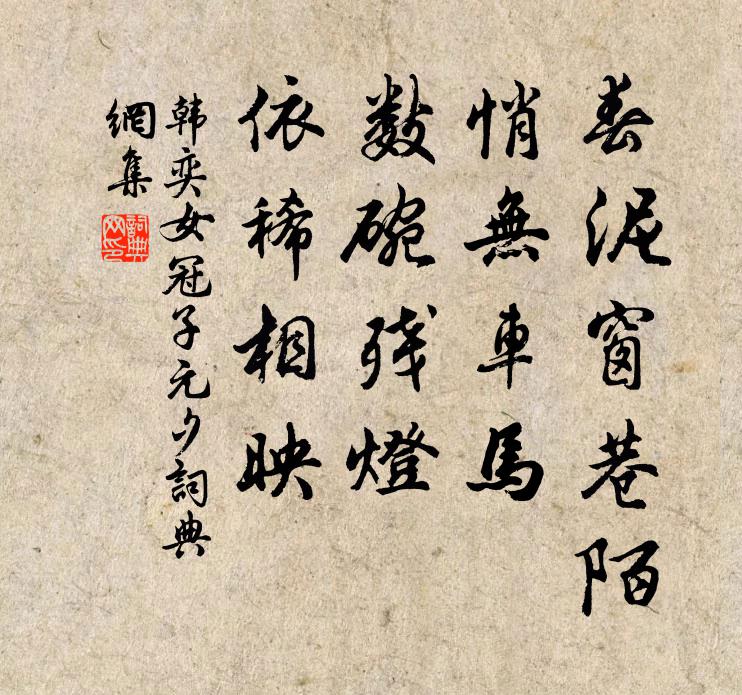 春泥窗巷陌
悄無車馬
數碗殘燈
依稀相映
韩奕女冠子元夕詞典
網集
詞典網印